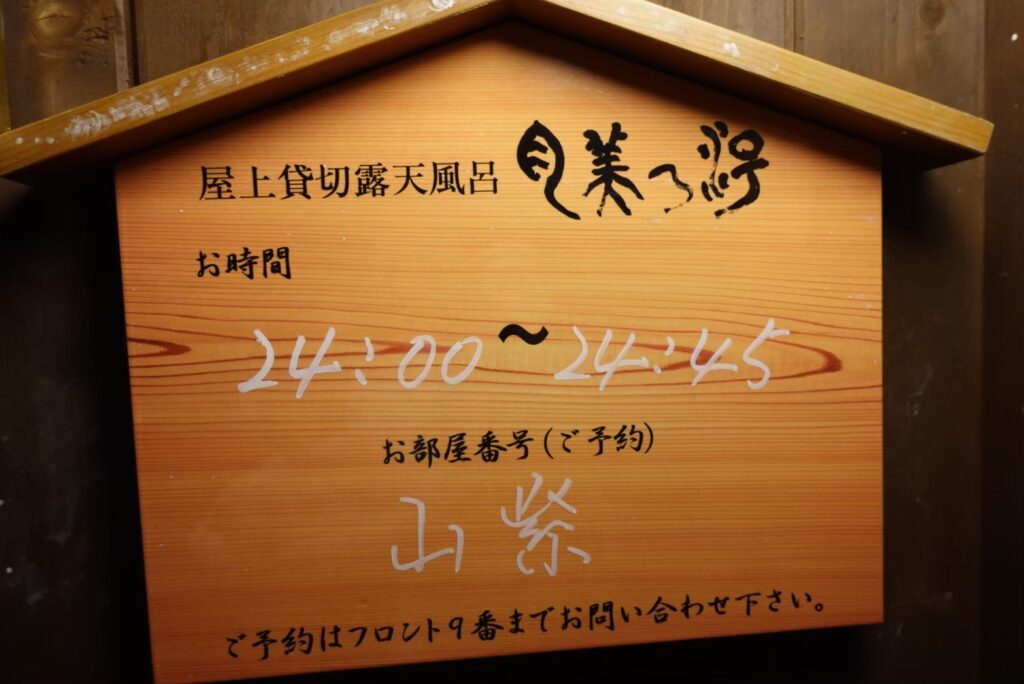 屋上貸切露天風呂 月美の湯
お時間
24:00〜24:45
お部屋番号(ご予約)
山紫
ご予約はフロント9番までお問い合わせ下さい。